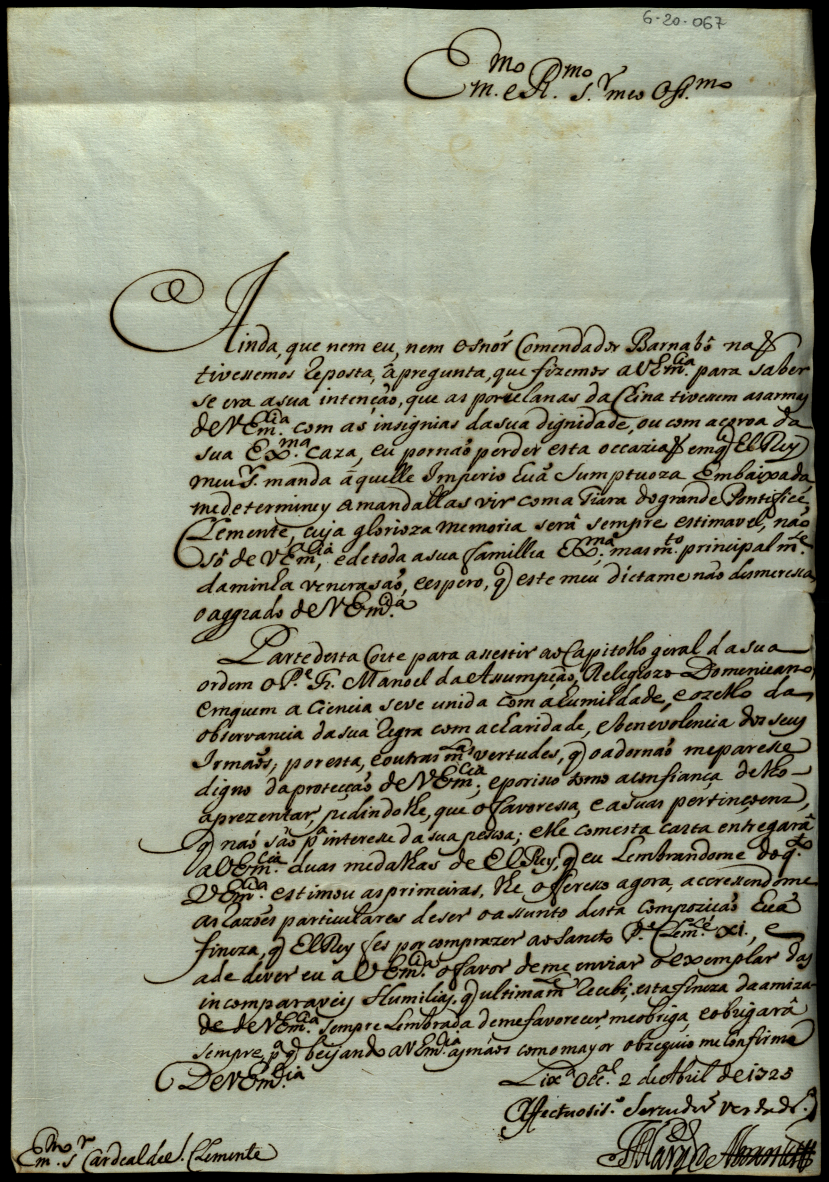 6-20-067
Em.mo e R.mo S.r meu Oss.mo
Ainda, que nem eu, nem o snór Comendador Barnabó naõ
tivessemos reposta, â pregunta, que fizemos a V Em.cia para saber
se era a sua intenção, que as porcelanas da China tivessem as armas
de V Em.cia com as insignias da sua dignidade, ou com a coroa da
sua Ex.ma caza, eu por naõ perder esta occaziaõ em q̃ El Rey
meu S.r manda á quelle Imperio huã Sumptuoza Embaixada
me determiney a mandallas vir com a Tiara do grande Pontifice,
Clemente, cuja glorioza memoria será sempre estimavel, não
só de V Em.cia, e de toda a sua famillia Ex.ma, mas m.to principal m.te
da minha venerasaõ, e espero, q̃ este meu dictame não desmeressa
o aggrado de V Em.cia
Parte desta Corte para assestir ao Capitolho geral da sua
ordem o P.e Fr. Manoel da Assumpção, Relegiozo Dominicano
em quem a Ciencia se ve unida com a humildade, e o zelho da
observancia da sua regra com a claridade, e benevolencia dos seus
Irmaõs; por esta, e outras m.tas vertudes, q̃ o adornaõ me paresse
digno da protecção de V Em.cia; e por isso tomo a confiança de lho
aprezentar, pedindo lhe, que o favoressa, e a suas pertinçoens,
q̃ naõ são p.a interesse da sua pessoa; elle com esta carta entregará
a V Em.cia duas medalhas de El Rey, q̃ eu lembrandome do q.to
V Em.cia estimou as primeiras, lhe offeresso agora, accressendome
as razões particulares de ser o assunto desta compoziçaõ huã
fineza, q̃ El Rey fes por comprazer ao Sancto P.e Clem.te XI., e
a de dever eu a V Em.cia o favor de me enviar o exemplar das
incomparaveis Humilias, q̃ ultimam.te recebi; esta fineza da amiza
de de V Em.cia sempre lembrada de me favorecer, me obriga, e obrigará
sempre, p.a q̃ beijando a V Em.cia as mãos como mayor obzequio me confirme
De V Em.cia
Lix.a Occ.al 2 de Abril de 1725
Affectuosis.o Servidor verdad.ro
Em.mo S.r Cardeal de S. Clemente